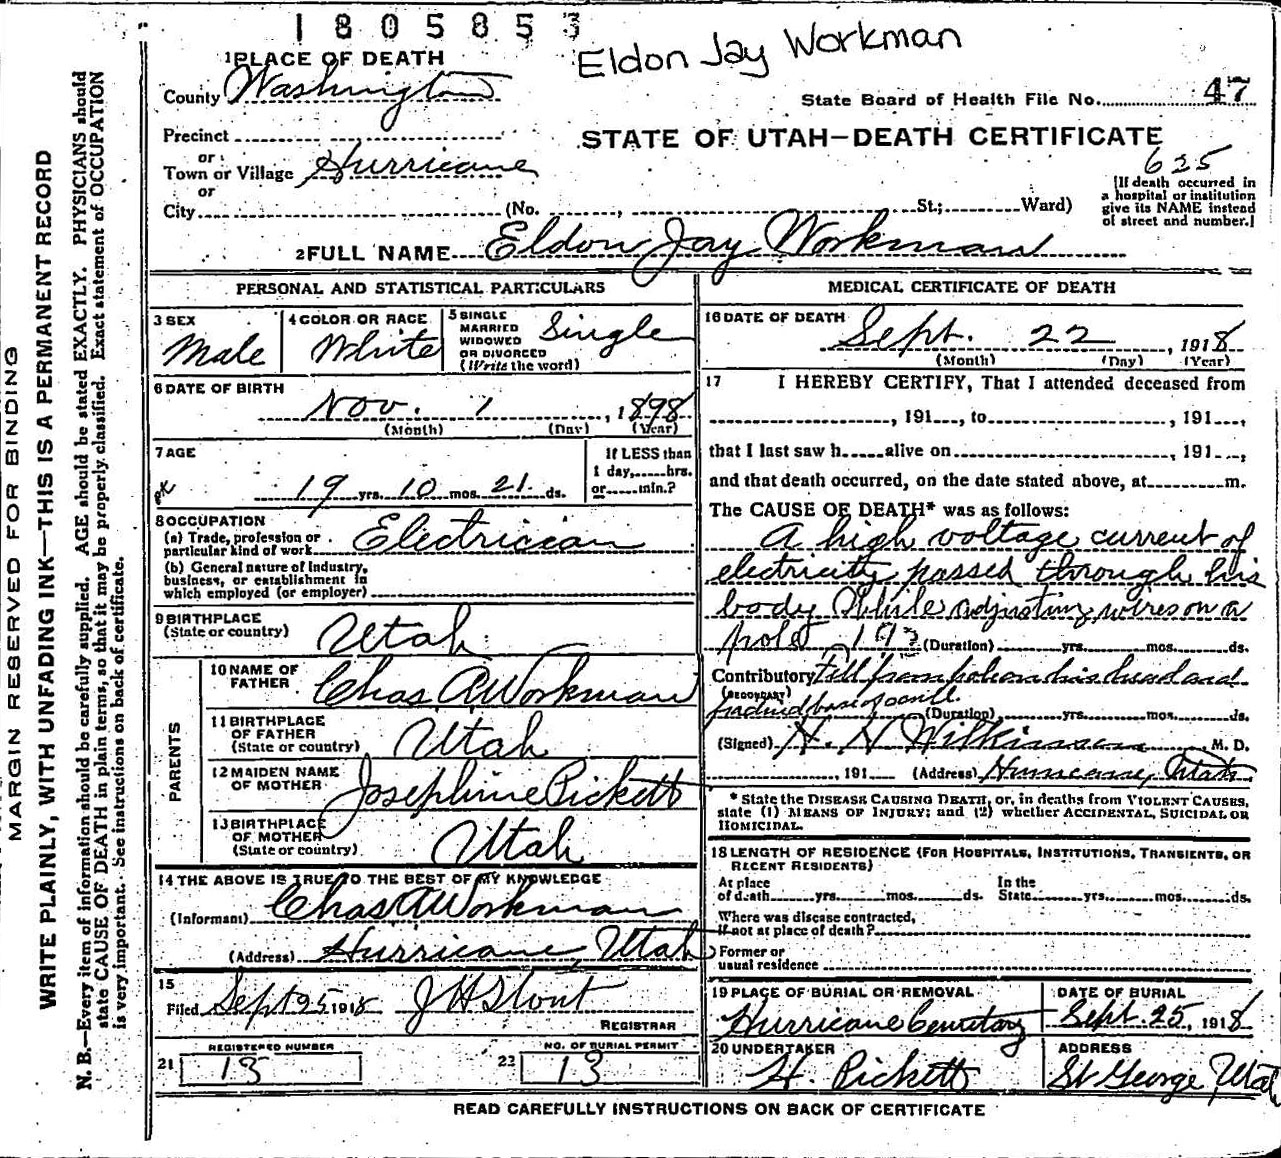 1805853
Eldon Jay Workman
1 PLACE OF DEATH
County Washington
State Board of Health File No. 47
Precinct
STATE OF UTAH—DEATH CERTIFICATE
or
Town or Village Hurricane
625
or
City (No. , St; Ward)
[If death occurred in
a hospital or institution
give its NAME instead
of street and number.]
2 FULL NAME Eldon Jay Workman
PERSONAL AND STATISTICAL PARTICULARS
3 SEX
Male
4 COLOR OR RACE
White
5 SINGLE
MARRIED
WIDOWED
OR DIVORCED
(Write the word)
Single
6 DATE OF BIRTH
Nov. 1, 1898
(Month) (Day) (Year)
7 AGE
19 yrs. 10 mos. 21 ds.
If LESS than
1 day, hrs.
or min.?
8 OCCUPATION
(a) Trade, profession or
particular kind of work Electrician
(b) General nature of Industry,
business, or establishment in
which employed (or employer)
9 BIRTHPLACE
(State or country) Utah
PARENTS
10 NAME OF
FATHER Chas. A. Workman
11 BIRTHPLACE
OF FATHER
(State or country) Utah
12 MAIDEN NAME
OF MOTHER Josephine Pickett
13 BIRTHPLACE
OF MOTHER
(State or country) Utah
14 THE ABOVE IS TRUE TO THE BEST OF MY KNOWLEDGE
(Informant) Chas A Workman
(Address) Hurricane, Utah
15
Filed Sept 25 1918 J H Stout
REGISTRAR
21 REGISTERED NUMBER
13
22 NO. OF BURIAL PERMIT
13
MEDICAL CERTIFICATE OF DEATH
16 DATE OF DEATH
Sept. 22, 1918
(Month) (Day) (Year)
17 I HEREBY CERTIFY, That I attended deceased from
, 191 , to , 191 ,
that I last saw h alive on , 191 ,
and that death occurred, on the date stated above, at m.
The CAUSE OF DEATH* was as follows:
A high voltage current of
electricity passed through his
body while adjusting wires on a
pole (Duration) yrs. mos. ds.
Contributory Fell from pole on his head and
(SECONDARY)
fractured base of
(Duration) yrs. mos. ds.
(Signed) Wilkinson M. D.
, 191 (Address) Hurricane, Utah
* State the DISEASE CAUSING DEATH, or, in deaths from VIOLENT CAUSES,
state (1) MEANS OF INJURY; and (2) whether ACCIDENTAL, SUICIDAL OR
HOMICIDAL.
18 LENGTH OF RESIDENCE (FOR HOSPITALS, INSTITUTIONS, TRANSIENTS, OR
RECENT RESIDENTS)
At place In the
of death yrs. mos. ds. State yrs. mos. ds.
Where was disease contracted,
If not at place of death?
Former or
usual residence
19 PLACE OF BURIAL OR REMOVAL
Hurricane Cemetary
DATE OF BURIAL
Sept. 25, 1918
20 UNDERTAKER
H. Pickett
ADDRESS
St George Utah
READ CAREFULLY INSTRUCTIONS ON BACK OF CERTIFICATE
MARGIN RESERVED FOR BINDING
WRITE PLAINLY, WITH UNFADING INK—THIS IS A PERMANENT RECORD
N. B.—Every item of information should be carefully supplied. AGE should be stated EXACTLY. PHYSICIANS should
state CAUSE OF DEATH in plain terms, so that it may be properly classified. Exact statement of OCCUPATION
is very important. See instructions on back of certificate.